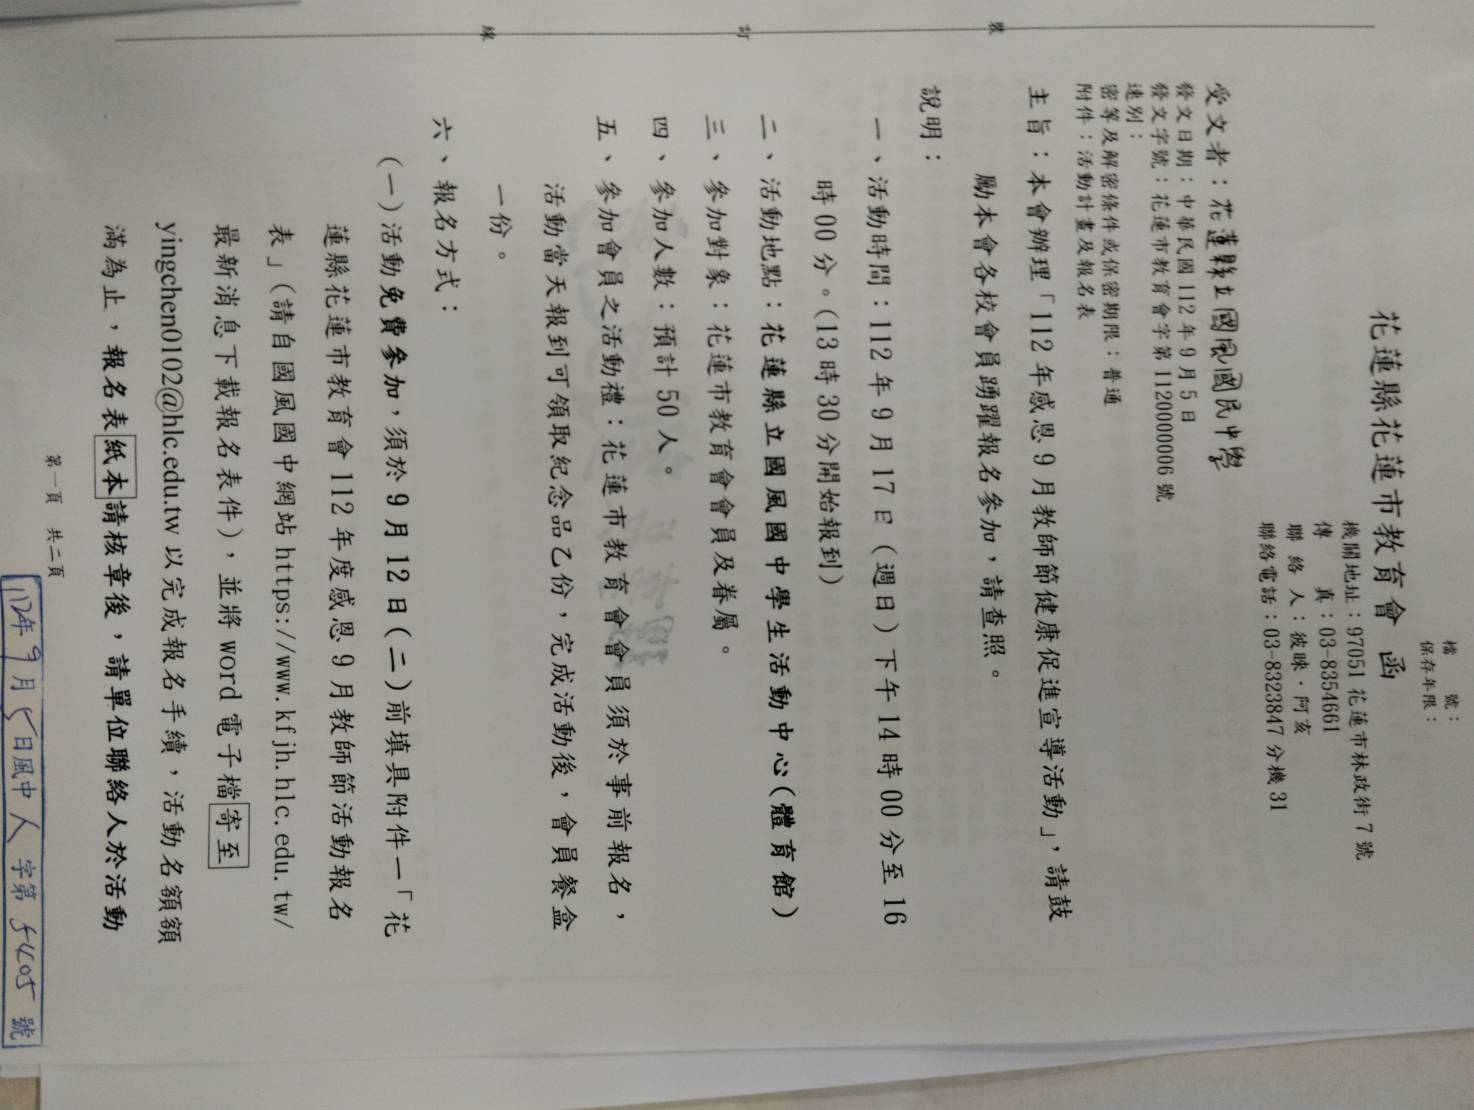 檔　　號：
保存年限：
花蓮縣花蓮市教育會　函
機關地址：97051 花蓮市林政街 7 號
傳　　真：03-8354661
聯 絡 人：彼睞·阿亥
聯絡電話：03-8323847 分機 31
受文者：花蓮縣立國風國民中學
發文日期：中華民國 112 年 9 月 5 日
發文字號：花蓮市教育會字第 1120000006 號
速別：
密等及解密條件或保密期限：普通
附件：活動計畫及報名表
主旨：本會辦理「112 年感恩 9 月教師節健康促進宣導活動」，請鼓
勵本會各校會員踴躍報名參加，請查照。
說明：
一、活動時間：112 年 9 月 17 日（週日）下午 14 時 00 分至 16
時 00 分。（13 時 30 分開始報到）
二、活動地點：花蓮縣立國風國中學生活動中心（體育館）
三、參加對象：花蓮市教育會會員及眷屬。
四、參加人數：預計 50 人。
五、參加會員之活動禮：花蓮市教育會會員須於事前報名，
活動當天報到可領取紀念品乙份，完成活動後，會員餐盒
一份。
六、報名方式：
（一）活動免費參加，須於 9 月 12 日（二）前填具附件一「花
蓮縣花蓮市教育會 112 年度感恩 9 月教師節活動報名
表」（請自國風國中網站 https://www.kfjh.hlc.edu.tw/
最新消息下載報名表件），並將 word 電子檔寄至
yingchen0102@hlc.edu.tw 以完成報名手續，活動名額額
滿為止，報名表紙本請核章後，請單位聯絡人於活動
第一頁　共二頁
裝
訂
線
112年9月5日風中人字第5405號